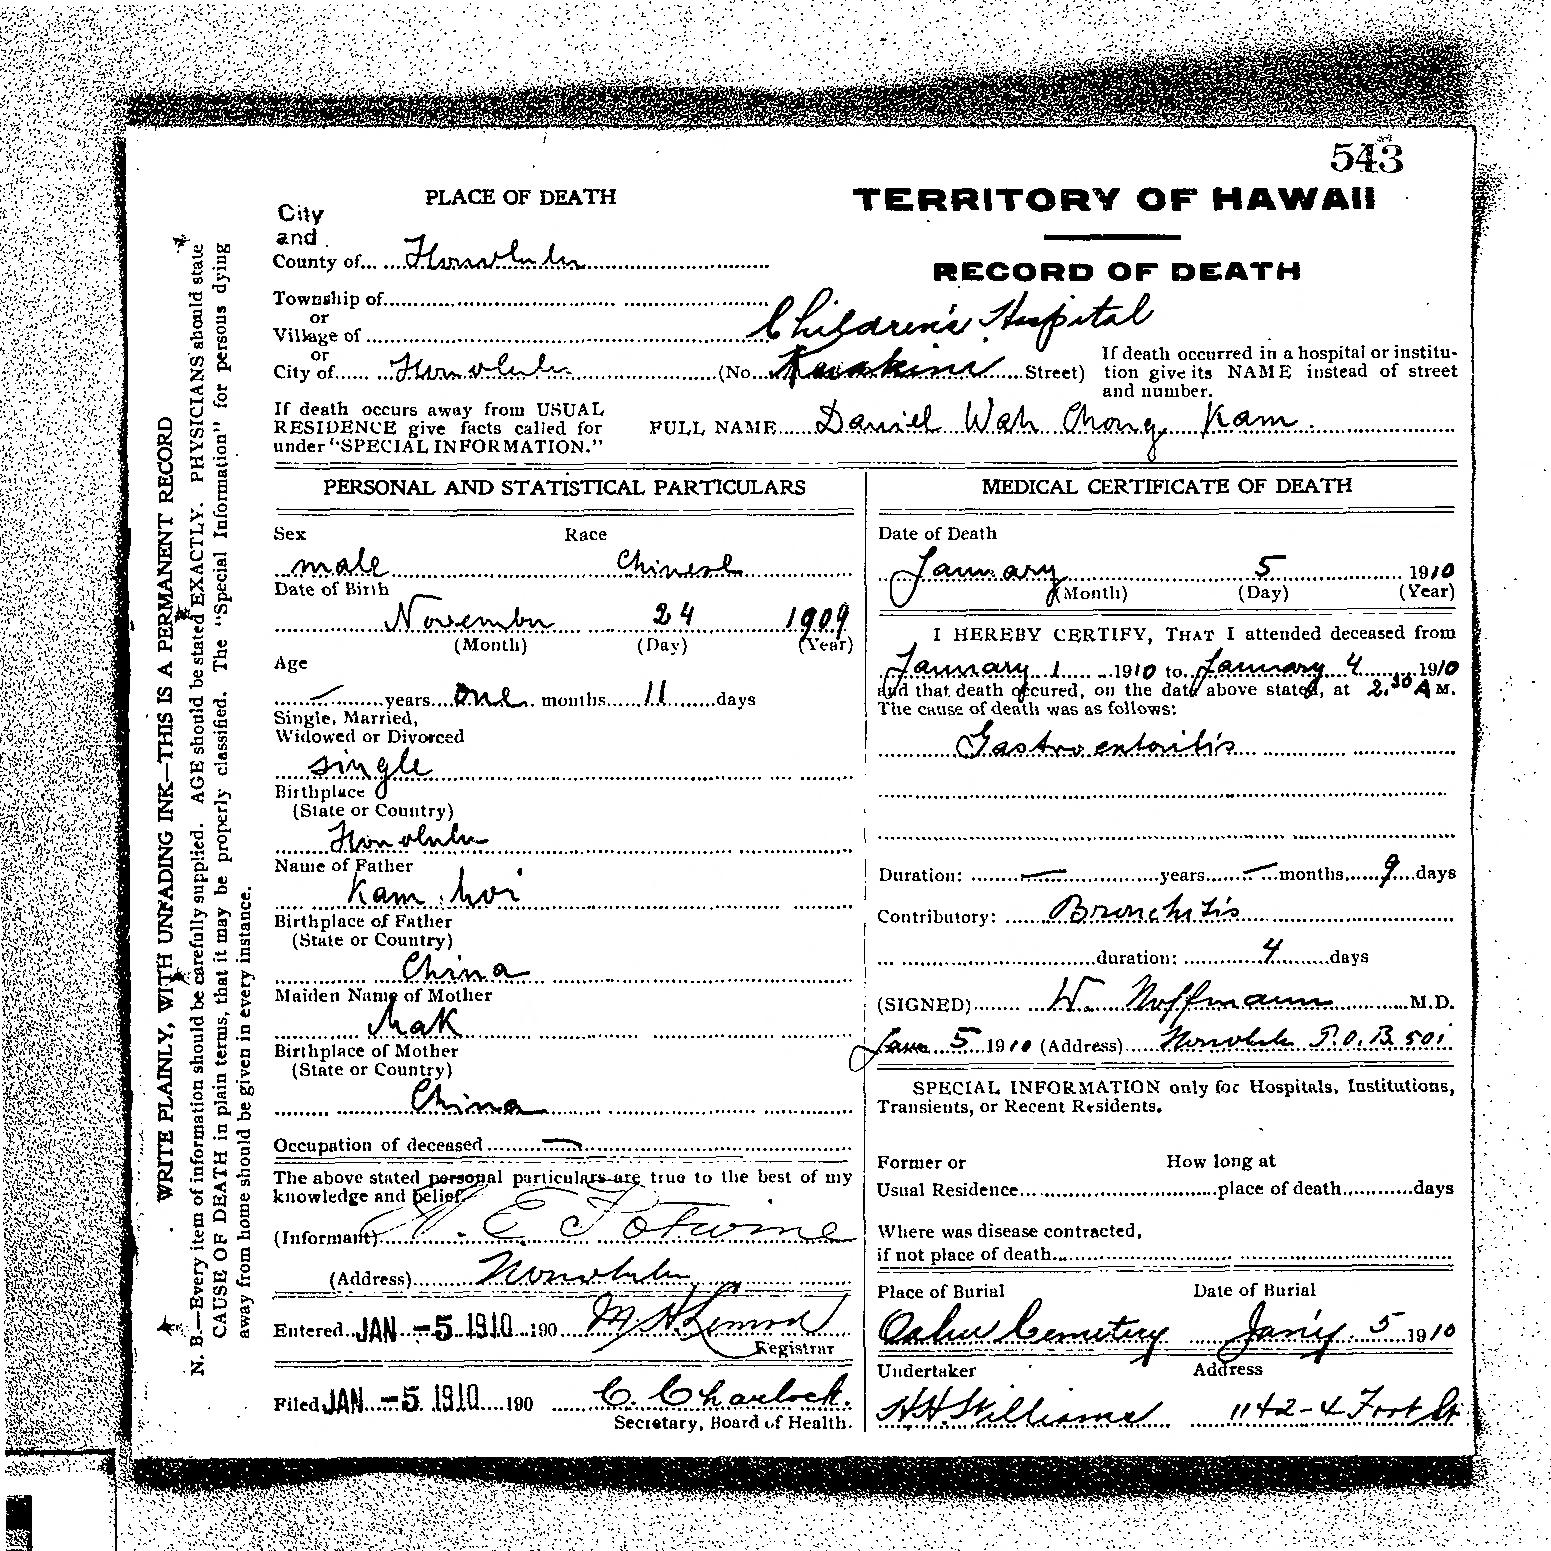 543
PLACE OF DEATH
TERRITORY OF HAWAII
RECORD OF DEATH
City
and
County of Honolulu
Township of
or
Village of
Children's Hospital
or
City of Honolulu (No. Street)
If death occurred in a hospital or institu-
tion give its NAME instead of street
and number.
If death occurs away from USUAL
RESIDENCE give facts called for
under "SPECIAL INFORMATION."
FULL NAME Daniel Wah Chong Kam
PERSONAL AND STATISTICAL PARTICULARS
Sex Race
male Chinese
Date of Birth
November 24 1909
(Month) (Day) (Year)
Age
— years one months 11 days
Single, Married,
Widowed or Divorced
single
Birthplace
(State or Country)
Honolulu
Name of Father
Kam hoi
Birthplace of Father
(State or Country)
China
Maiden Name of Mother
Mak
Birthplace of Mother
(State or Country)
China
Occupation of deceased —
The above stated personal particulars are true to the best of my
knowledge and belief.
(Informant) E. Potwine
(Address) Honolulu
Entered JAN -5 1910 190 Lemon
Registrar
Filed JAN -5 1910 190 C. Charlock.
Secretary, Board of Health.
MEDICAL CERTIFICATE OF DEATH
Date of Death
January 5 1910
(Month) (Day) (Year)
I HEREBY CERTIFY, THAT I attended deceased from
January 1 1910 to January 4 1910
and that death occured, on the date above stated, at 2.30 A M.
The cause of death was as follows:
Gastro enteritis
Duration: — years — months 9 days
Contributory: Bronchitis
duration: 4 days
(SIGNED) W. Hoffmann M.D.
Jan 5 1910 (Address) Honolulu P.O.B. 501
SPECIAL INFORMATION only for Hospitals, Institutions,
Transients, or Recent Residents.
Former or How long at
Usual Residence place of death days
Where was disease contracted,
if not place of death
Place of Burial Date of Burial
Oahu Cemetery Jan'y. 5 1910
Undertaker Address
H.H. Williams 1142-4 Fort St
WRITE PLAINLY, WITH UNFADING INK—THIS IS A PERMANENT RECORD
N. B.—Every item of information should be carefully supplied. AGE should be stated EXACTLY. PHYSICIANS should state
CAUSE OF DEATH in plain terms, that it may be properly classified. The "Special Information" for persons dying
away from home should be given in every instance.